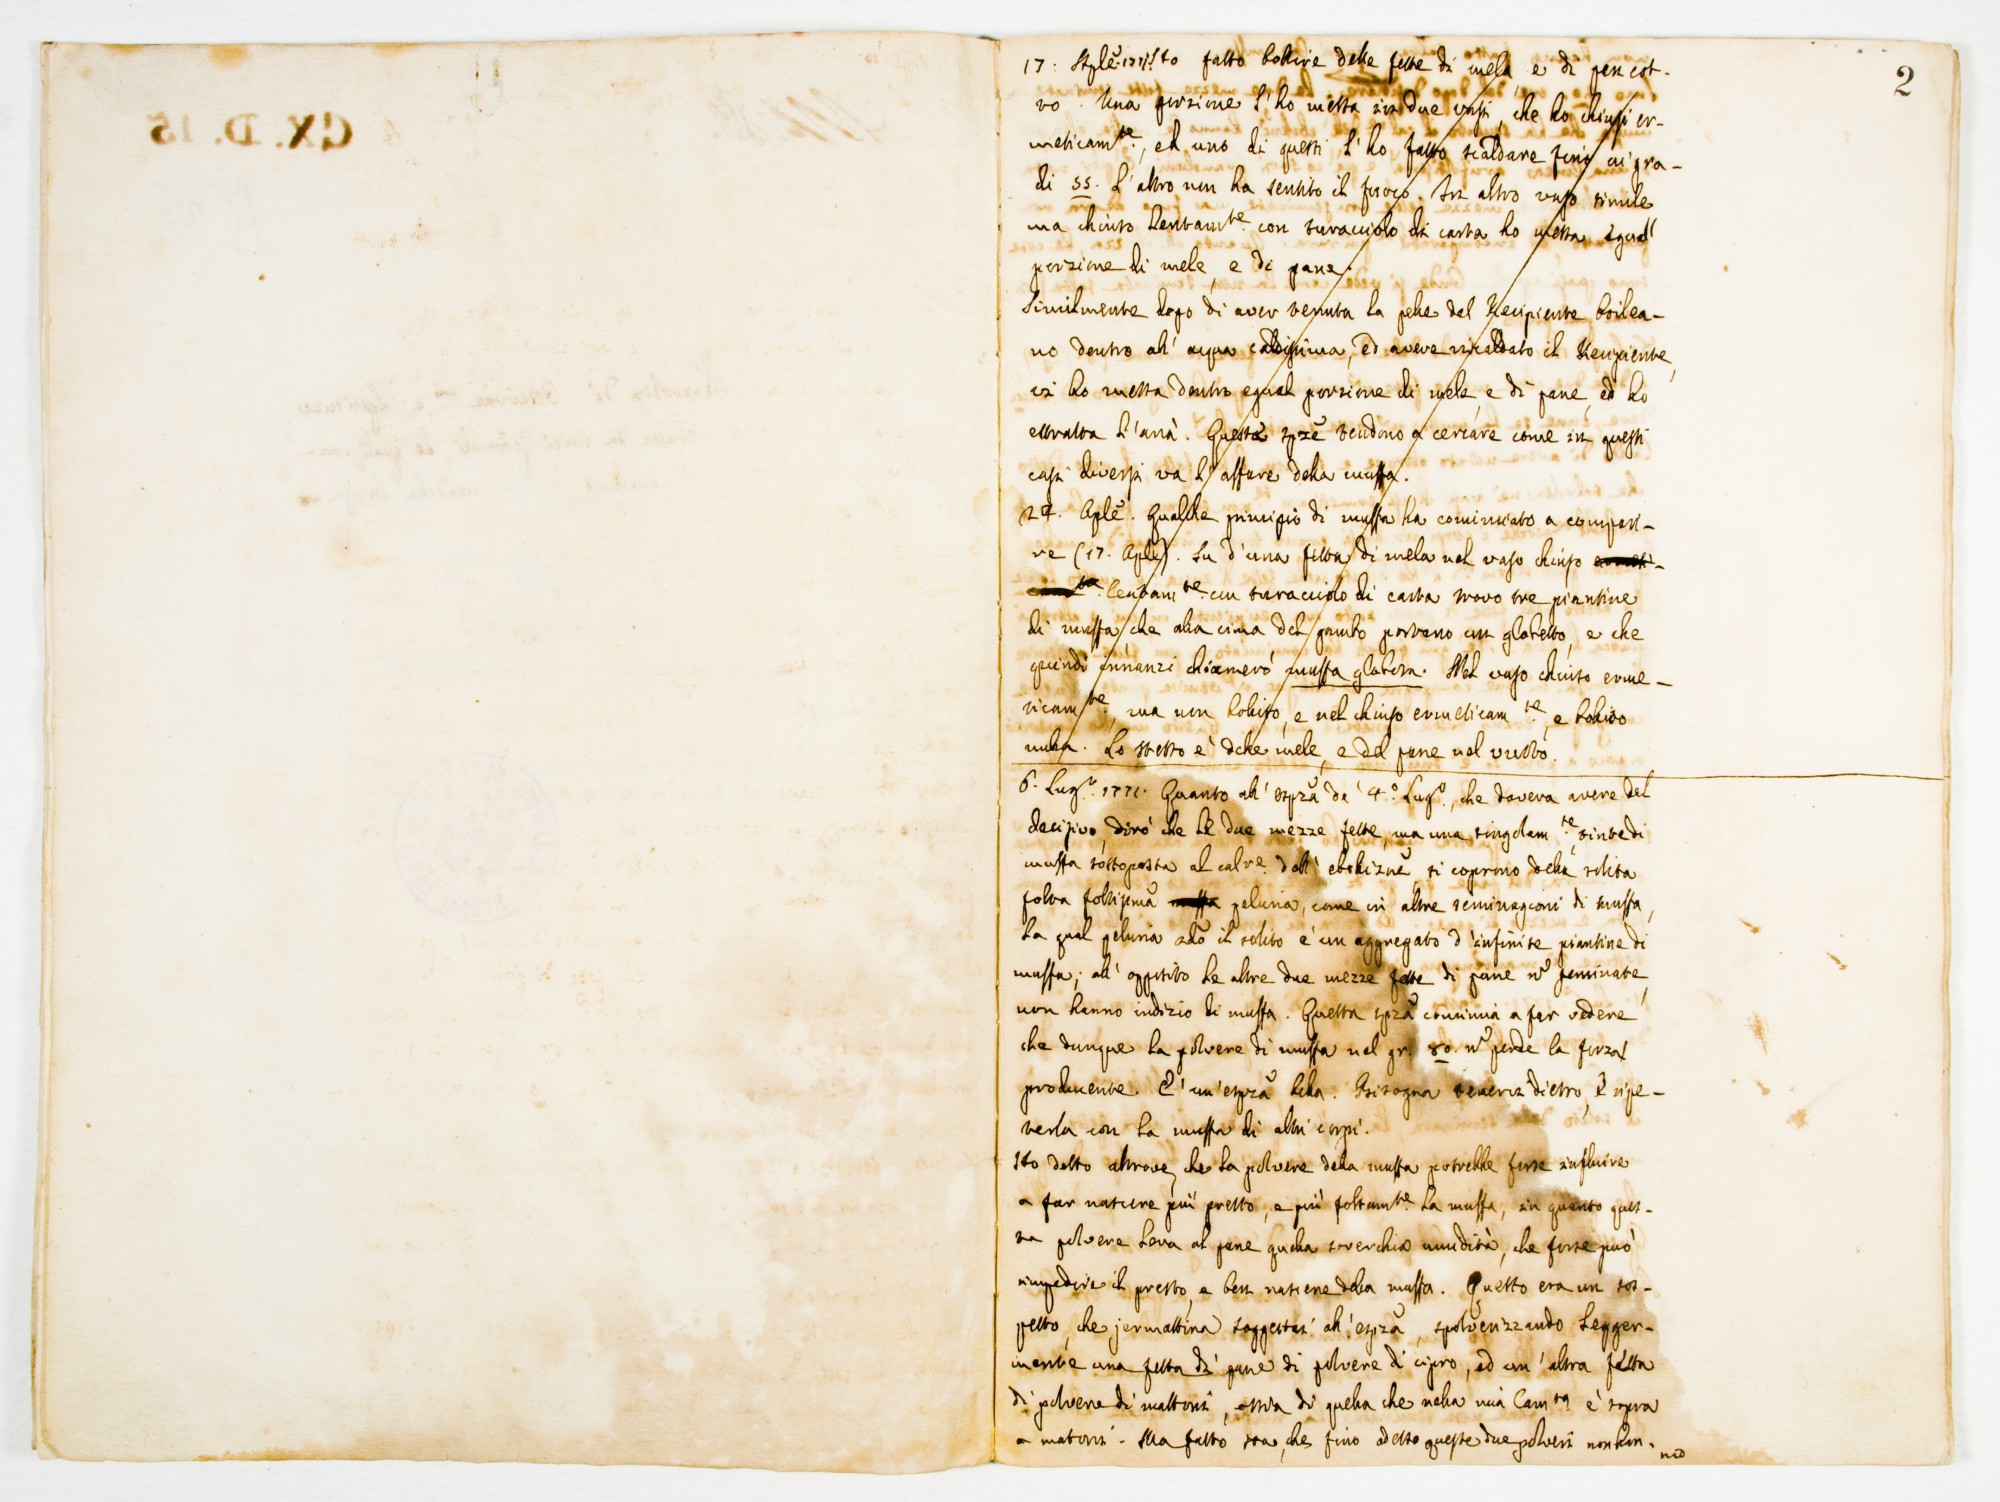 CX. D. 15
2
17. Aple 1771. Ho fatto bollire delle fette di mela e di pan cot-
to. Una porzione l'ho messa in due vasi, che ho chiusi er-
meticamte, ed uno di questi l'ho fatto scaldare fino ai gra-
di 55. L'altro non ha sentito il fuoco. In altro vaso simile
ma chiuso lentamte con turacciolo di carta ho messa egual
porzione di mele, e di pane.
Similmente dopo di aver tenuta la pelle del Recipiente boilea-
no dentro all'acqua caldissima, ed avere riscaldato il Recipiente,
vi ho messa dentro egual porzione di mele, e di pane, ed ho
estratta l'aria. Queste spze tendono a cercare come in questi
casi diversi va l'affare della muffa.
24. Aple. Qualche principio di muffa ha cominciato a compari-
re (17. Aple). Su d'una fetta di mela nel vaso chiuso
lentamte con turacciolo di carta trovo tre piantine
di muffa che alla cima del gambo portano un globetto, e che
quindi innanzi chiamerò muffa globosa. Nel vaso chiuso erme-
ticamte, ma non bollito, e nel chiuso ermeticamte, e bollito
nulla. Lo stesso è delle mele, e del pane nel vuoto.
6. Lugo. 1771. Quanto all'espza de' 4. Lugo, che doveva avere del
decisivo, dirò che le due mezze fette, ma una singolamte, tinte di
muffa sottoposta al calre dell'ebollizne, si coprono della solita
folta foltissima peluria, come in altre seminagioni di muffa,
la qual peluria sedo il solito è un aggregato d'infinite piantine di
muffa; all'opposto le altre due mezze fette di pane no seminate,
non hanno indizio di muffa. Questa spza continua a far vedere
che dunque la polvere di muffa nel gr. 80. no perde la forza
producente. È un'espza bella. Bisogna tenerci dietro, e ripe-
terla con la muffa di altri corpi.
Ho detto altrove, che la polvere della muffa potrebbe forse influire
a far nascere più presto, e più foltamte la muffa, in quanto ques-
ta polvere leva al pane quella soverchia umidità, che forse può
impedire il presto, e ben nascere della muffa. Questo era un sos-
petto, che jermattina soggettai all'espza, spolverizzando legger-
mente una fetta di pane di polvere di cipro, ed un'altra fetta
di polvere di mattoni, ossia di quella che nella mia Camra è sopra
a mattoni. Ma fatto sta, che fino adesso queste due polveri non han-
no